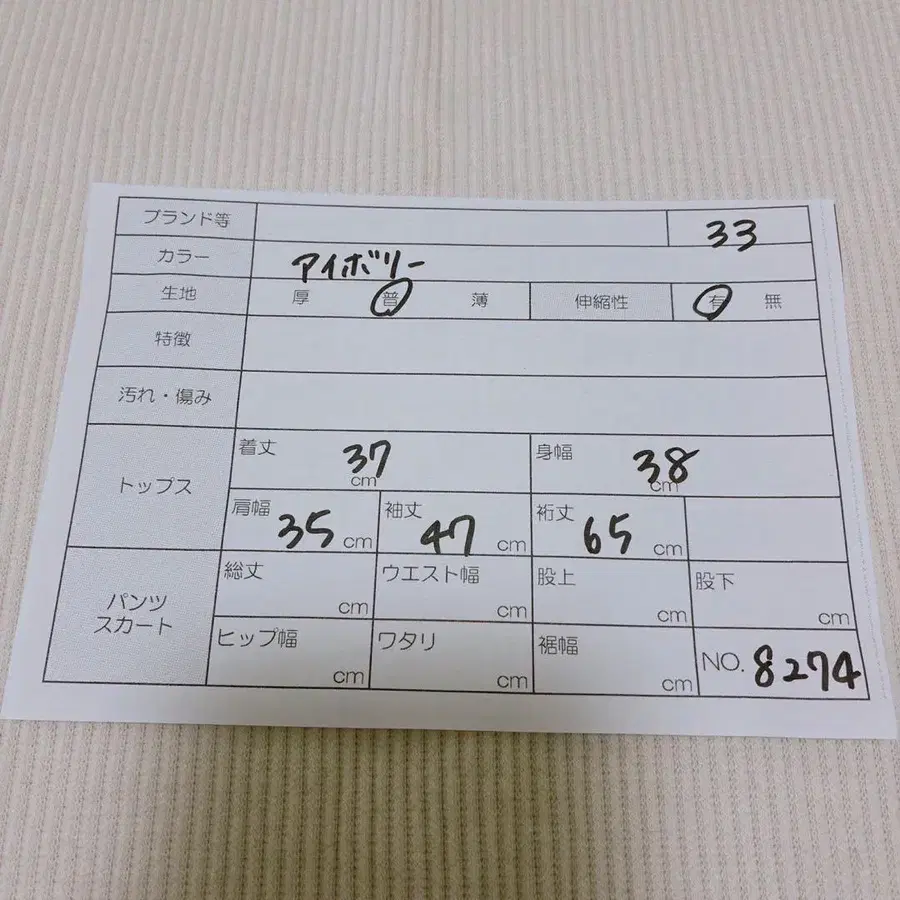 ブランド等 33
カラー アイボリー
生地 厚 普 薄 伸縮性 有 無
特徴
汚れ・傷み
トップス
着丈 37 cm 身幅 38 cm
肩幅 35 cm 袖丈 47 cm 裄丈 65 cm
パンツ
スカート
総丈 cm ウエスト幅 cm 股上 cm 股下 cm
ヒップ幅 cm ワタリ cm 裾幅 cm NO. 8274